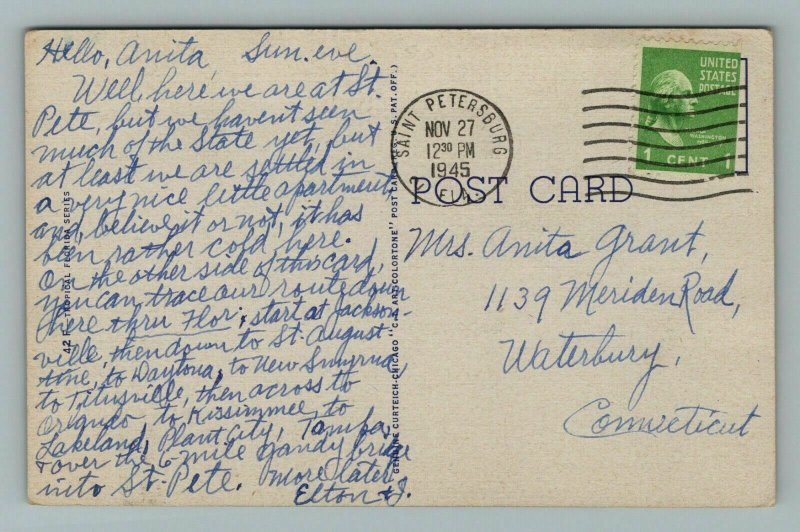 Hello, Anita Sun. eve
Well here we are at St.
Pete, but we haven't seen
much of the State yet, but
at least we are settled in
a very nice little apartment,
and, believe it or not, it has
been rather cold here.
On the other side of this card,
you can trace our route down
here thru Flor; start at Jackson-
ville, then down to St. August
ine, to Daytona, to New Smyrna,
to Titusville, then across to
Orlando to Kissimmee, to
Lakeland, Plant City, Tampa,
& over the 6-mile Gandy bridge
into St. Pete. More later
Elton & J.
42 F — TROPICAL FLORIDA SERIES
GENUINE CURTEICH-CHICAGO "C.T. ART-COLORTONE" POST CARD (REG. U.S. PAT. OFF.)
SAINT PETERSBURG
NOV 27
12 30 PM
1945
FLA.
UNITED
STATES
POSTAGE
WASHINGTON
1 CENT 1
POST CARD
Mrs. Anita Grant,
1139 Meriden Road,
Waterbury,
Connecticut